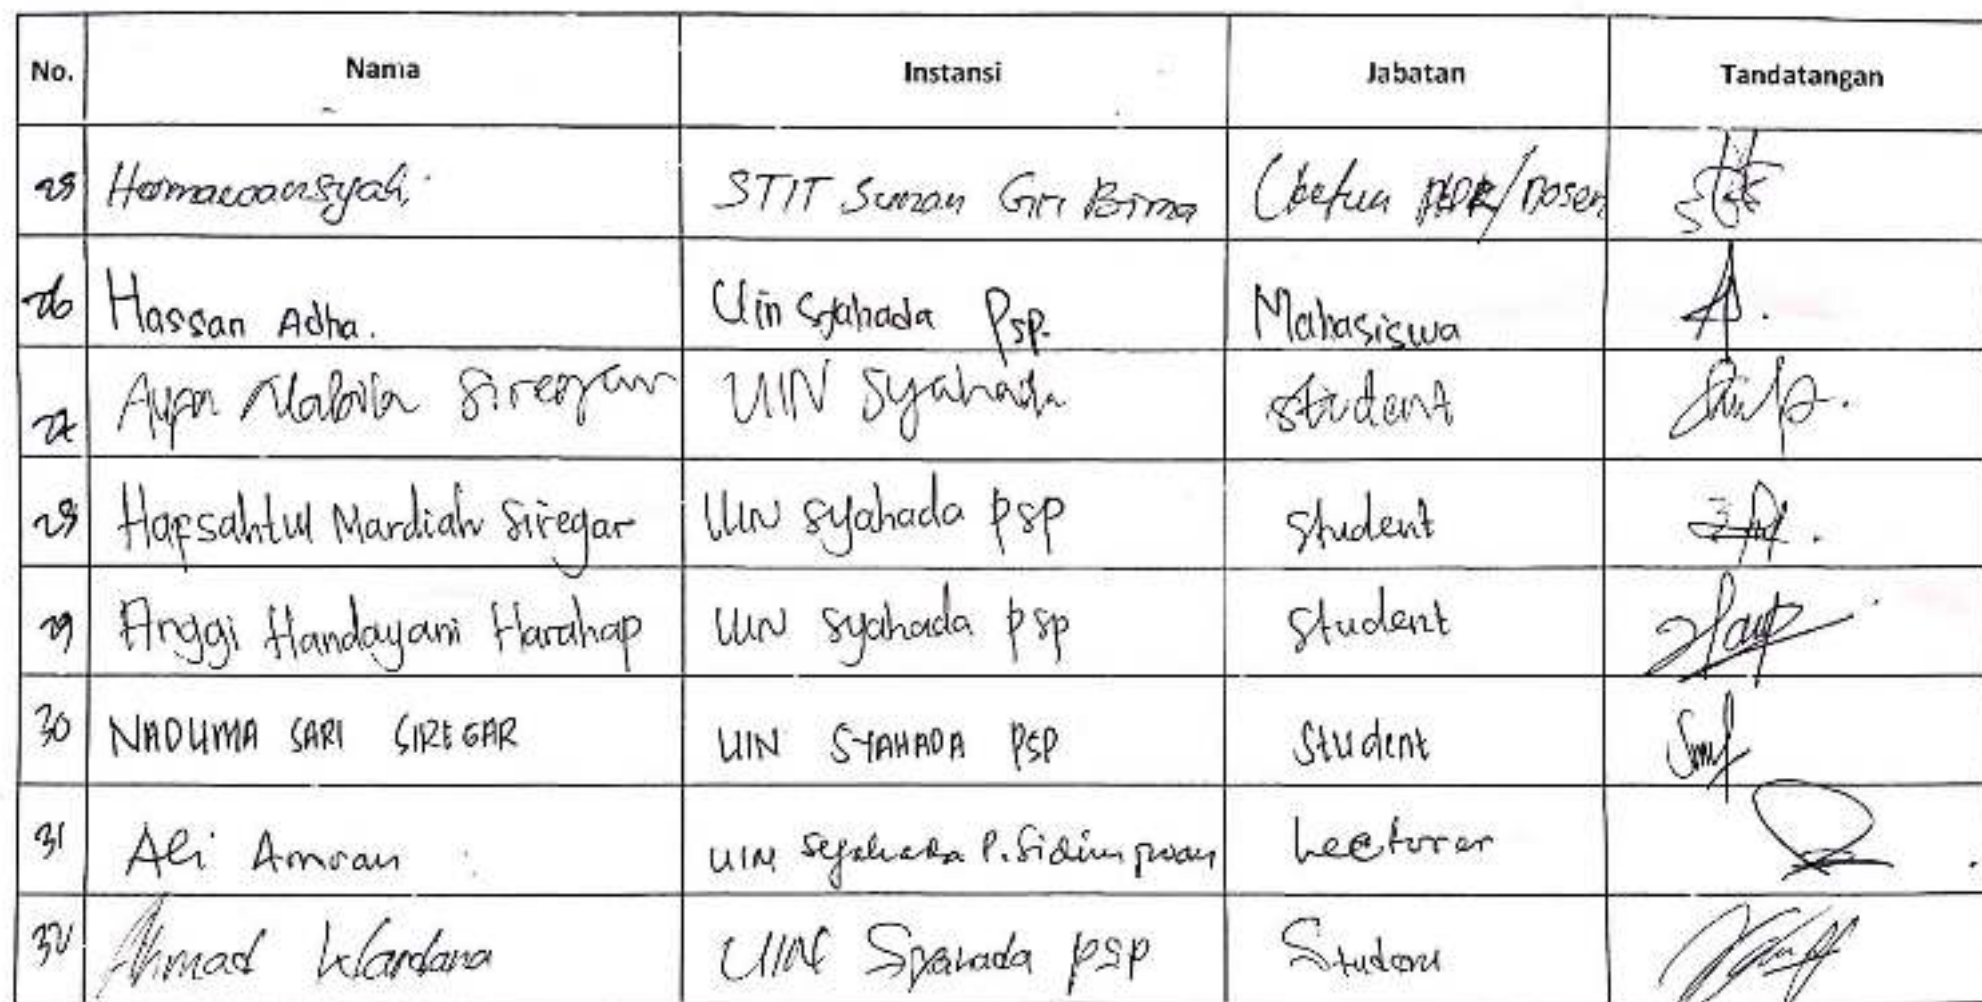 No. Nama Instansi Jabatan Tandatangan
25 Hermawansyah, STIT Sunan Giri Bima Ketua /Dosen
26 Hassan Adha. Uin Syahada Psp. Mahasiswa
27 Nabila Siregar UIN Syahada student
28 Hapsahtul Mardiah Siregar UIN syahada psp student
29 Anggi Handayani Harahap UIN syahada psp student
30 NADUMA SARI SIREGAR UIN SYAHADA PSP Student
31 Ali Amran UIN Syahada P.Sidimpuan Lecturer
32 Ahmad Wardana UIN Syahada PSP Student